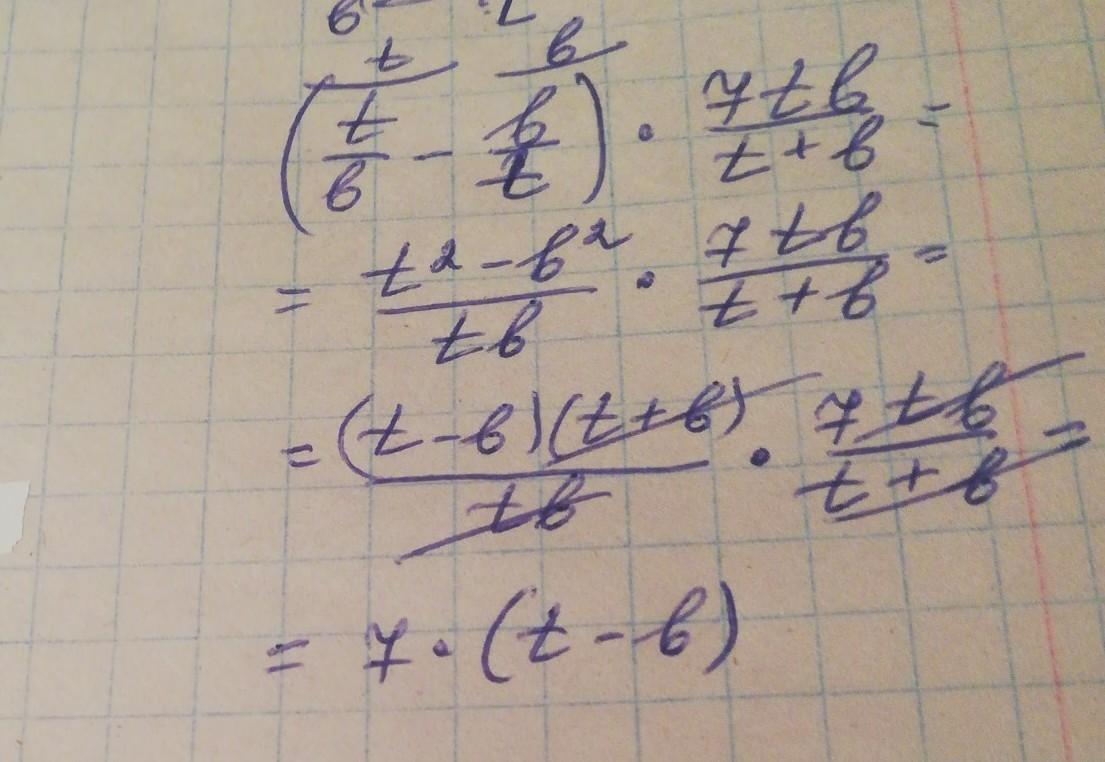 t b
(t/b - b/t) · 7tb/(t+b) =
= (t² - b²)/(tb) · 7tb/(t+b) =
= (t-b)(t+b)/(tb) · 7tb/(t+b) =
= 7·(t-b)